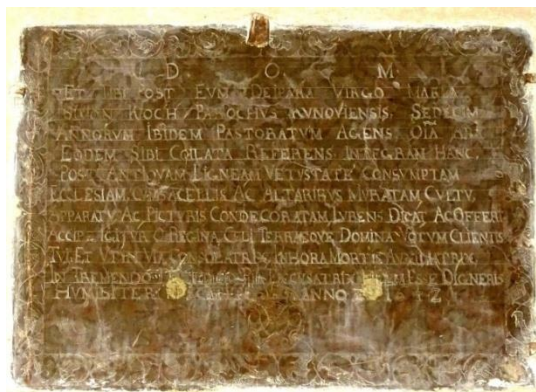 D O M
ET TIBI POST EVM DEIPARA VIRGO MARIA
SIMON KOCH PAROCHVS RVNOVIENSIS, SEDECIM
ANNORVM IBIDEM PASTORATVM AGENS OIA
EODEM SIBI COLLATA REFERENS INTEGRAM HANC,
POST ANTIQVAM LIGNEAM VETVSTATE CONSVMPTAM
ECCLESIAM, CVM SACELLIS AC ALTARIBVS MVRATAM CVLTV,
APPARATV AC PICTVRIS CONDECORATAM, LVBENS DICAT AC OFFERT
ACCIPE IGITVR O REGINA CELI TERRAEQVE DOMINA VOTVM CLIENTIS
TVI, ET VTI IN VIA CONSOLATRIX, IN HORA MORTIS
IN TREMENDO ESSE DIGNERIS
HVMILITER ANNO